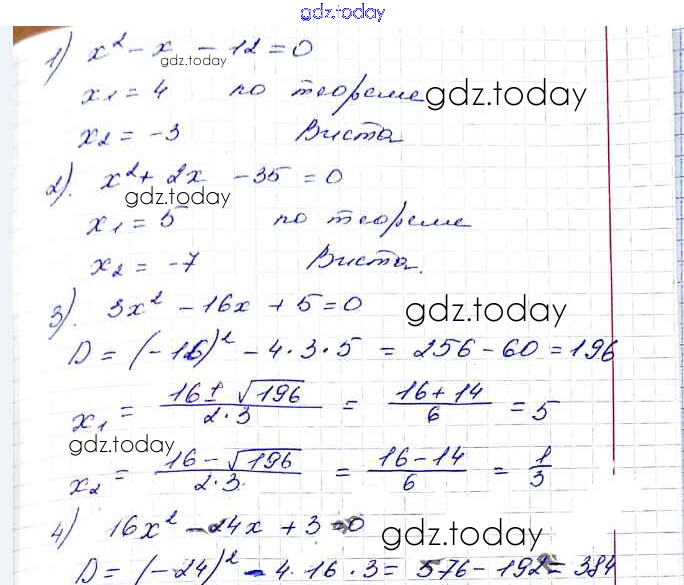 gdz.today
1) x² - x - 12 = 0
gdz.today
x₁ = 4 по теореме
gdz.today
x₂ = -3 Виета
2). x² + 2x - 35 = 0
gdz.today
x₁ = 5 по теореме
x₂ = -7 Виета.
3). 3x² - 16x + 5 = 0
gdz.today
D = (-16)² - 4·3·5 = 256 - 60 = 196
x₁ = (16 ± √196)/(2·3) = (16 + 14)/6 = 5
gdz.today
x₂ = (16 - √196)/(2·3) = (16 - 14)/6 = 1/3
4) 16x² - 24x + 3 = 0
gdz.today
D = (-24)² - 4·16·3 = 576 - 192 = 384